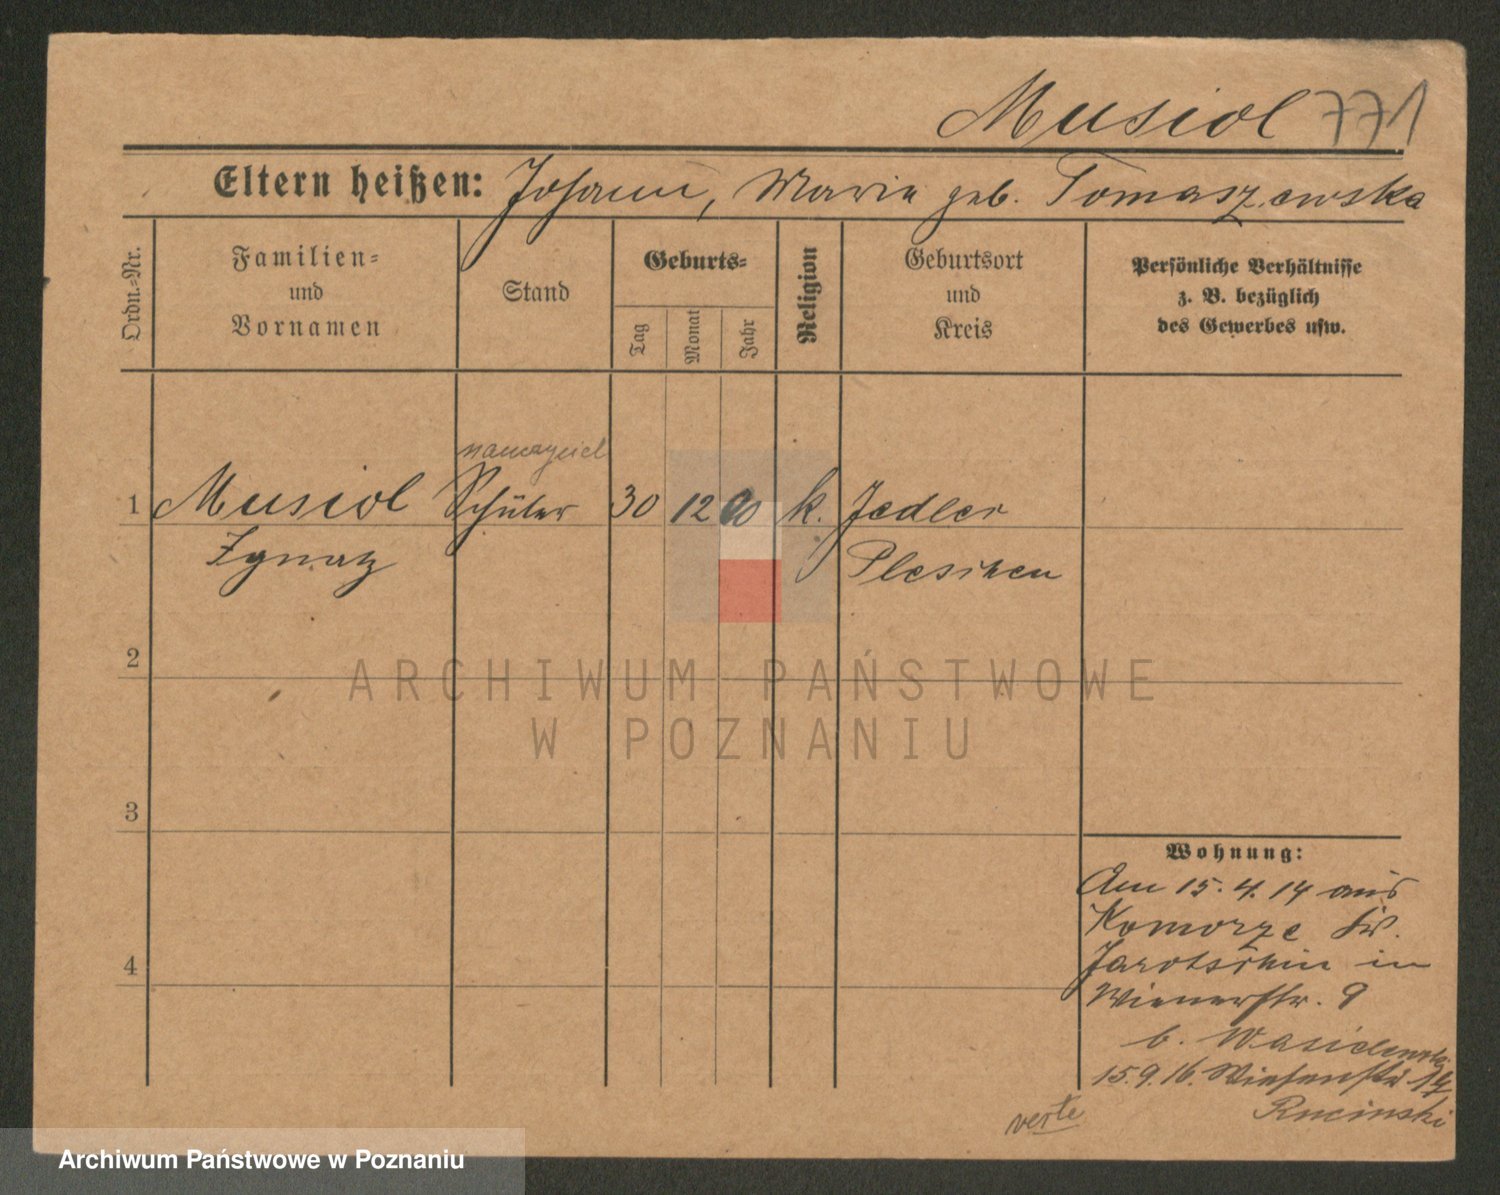 Musiol 771
Eltern heißen: Johann, Maria geb. Tomaszewska
Ordn.-Nr.
Familien-
und
Vornamen
Stand
Geburts-
Tag
Monat
Jahr
Religion
Geburtsort
und
Kreis
Persönliche Verhältnisse
z. B. bezüglich
des Gewerbes usw.
nauczyciel
1 Musiol Schüler 30 12 90 k. Jedlec
Ignatz Pleschen
2
ARCHIWUM PAŃSTWOWE
W POZNANIU
3
4
Wohnung:
Am 15.4.14 aus
Komorze Kr.
Jarotschin in
Wienerstr. 9
b. Wasielewski
15.9.16. Wiesenstr 14
Rucinski
verte
Archiwum Państwowe w Poznaniu